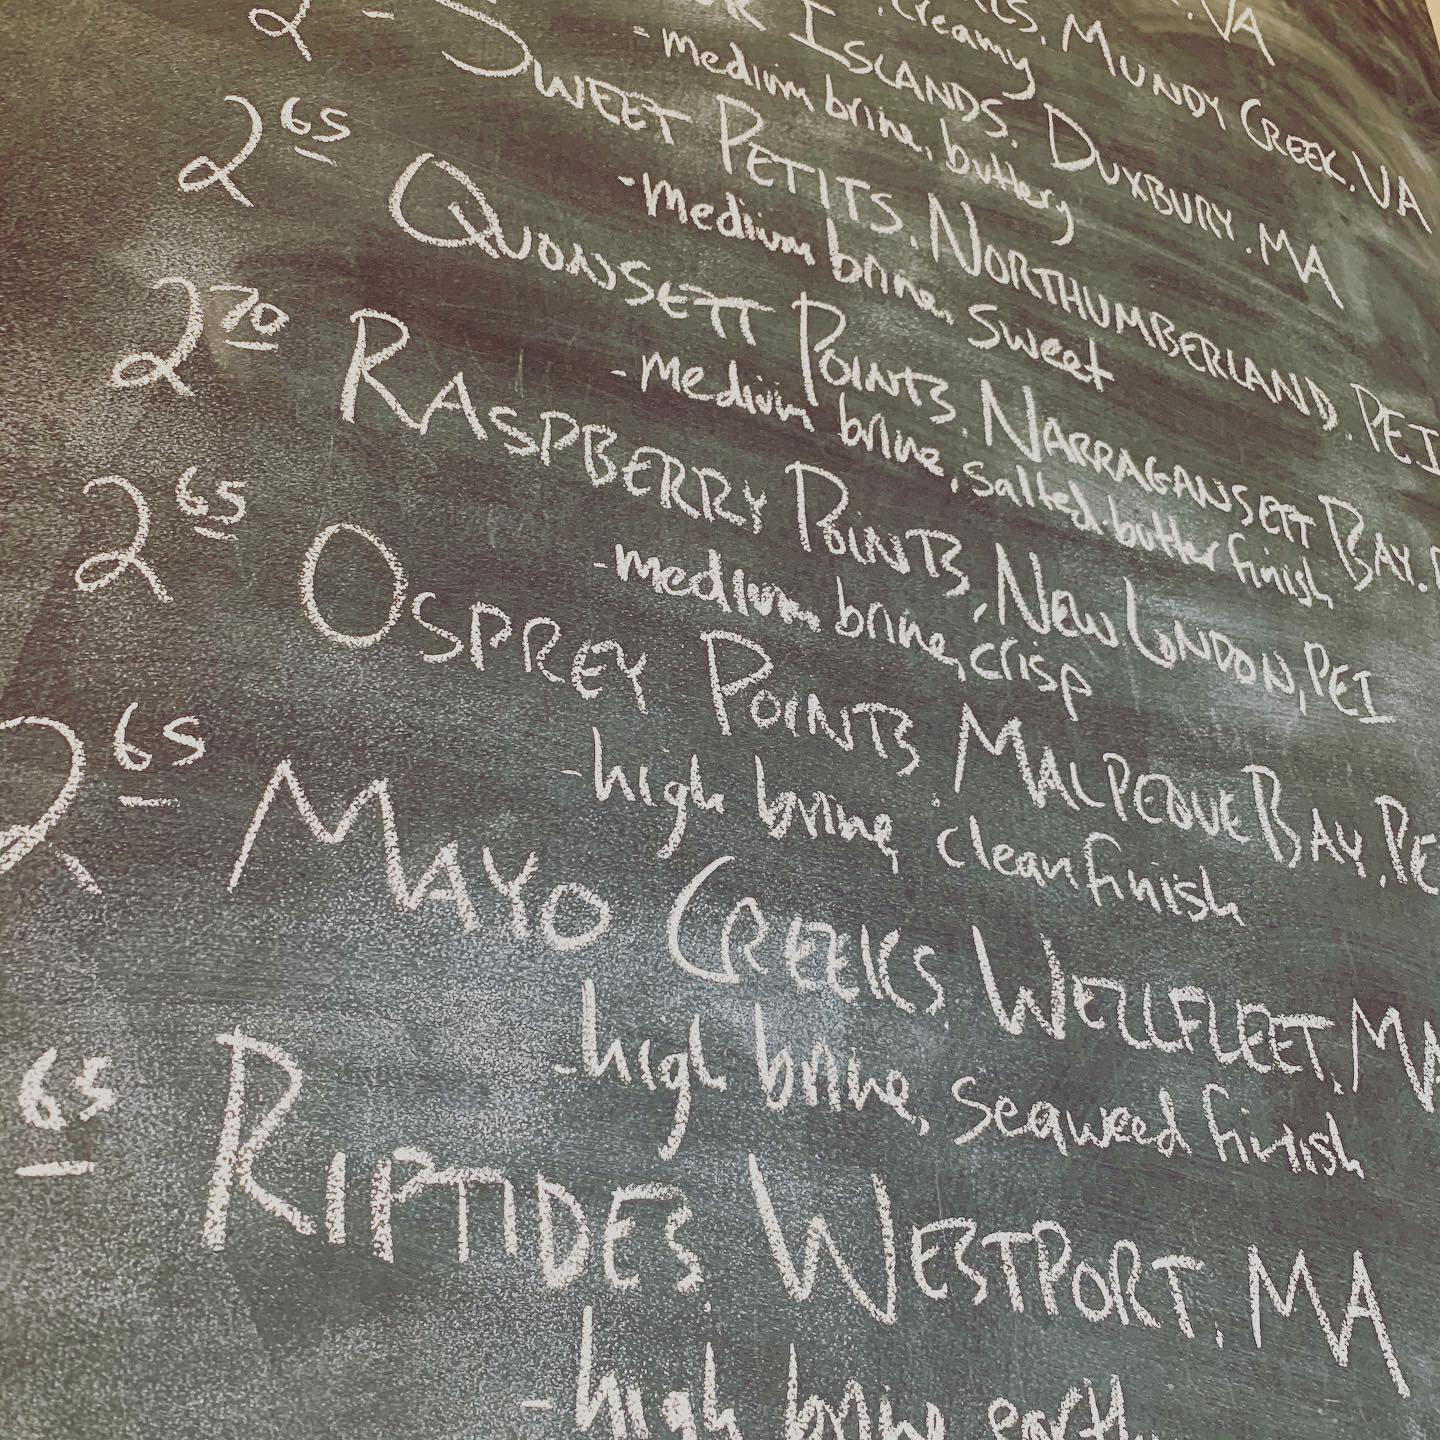 VA
MUNDY CREEK. VA
creamy
ISLANDS. DUXBURY. MA
- medium brine, buttery
2 - SWEET PETITS. NORTHUMBERLAND. PEI
- medium brine, sweet
2 65 QUONSETT POINTS. NARRAGANSETT BAY.
- medium brine, salted. butter finish
2 70 RASPBERRY POINTS, NEW LONDON, PEI
- medium brine, crisp
2 65 OSPREY POINTS. MALPEQUE BAY. PE
- high brine, clean finish
2 65 MAYO CREEKS. WELLFLEET. MA
- high brine, seaweed finish
65 RIPTIDES. WESTPORT. MA
- high brine